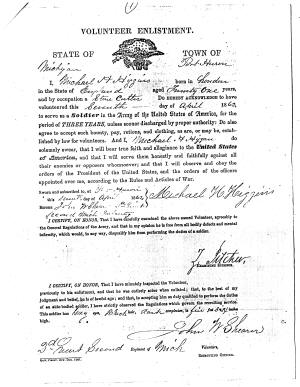 VOLUNTEER ENLISTMENT.
STATE OF
TOWN OF
Michigan
Port Huron
I, Michael H Higgins born in London
in the State of England aged Twenty One years,
and by occupation a Do HEREBY ACKNOWLEDGE to have
volunteered this Seventh day of April 1862
to serve as a Soldier in the Army of the United States of America, for the
period of THREE YEARS, unless sooner discharged by proper authority: Do also
agree to accept such bounty, pay, rations, and clothing, as are, or may be, established
by law for volunteers. And I, Michael H Higgins do
solemnly swear, that I will bear true faith and allegiance to the United States
of America, and that I will serve them honestly and faithfully against all
their enemies or opposers whomsoever; and that I will observe and obey the
orders of the President of the United States, and the orders of the officers
appointed over me, according to the Rules and Articles of War.
Sworn and subscribed to, at
this day of April 1862
BEFORE
Michael H Higgins
I CERTIFY, ON HONOR, That I have carefully examined the above named Volunteer, agreeably
to the General Regulations of the Army, and that in my opinion he is free from all bodily defects and mental
infirmity, which would, in any way, disqualify him from performing the duties of a soldier.
EXAMINING SURGEON.
I CERTIFY, ON HONOR, That I have minutely inspected the Volunteer,
previously to his enlistment, and that he was entirely sober when enlisted; that, to the best of my
judgment and belief, he is of lawful age; and that, in accepting him as duly qualified to perform the duties
of an able-bodied soldier, I have strictly observed the Regulations which govern the recruiting service.
This soldier has eyes, hair, complexion, is feet inches
high.
John W
Second Regiment of Mich Volunteers,
RECRUITING OFFICER.